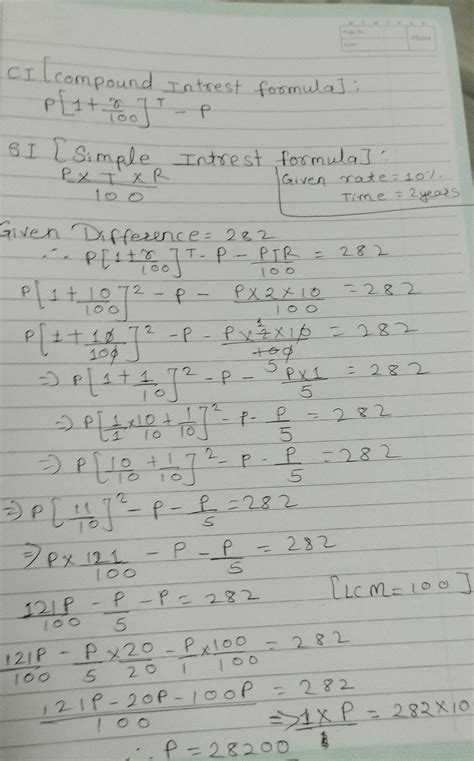 CI [compound Intrest formula]:
P[1+r/100]^T - P
SI [Simple Intrest formula]:
P×T×R/100
Given rate=10%
Time = 2years
Given Difference= 282
∴ P[1+r/100]^T - P - PTR/100 = 282
P[1+10/100]^2 - P - P×2×10/100 = 282
P[1+10/100]^2 - P - P×2×10/100 = 282
1
5
⇒ P[1+1/10]^2 - P - P×1/5 = 282
⇒ P[1/1×10/10+1/10]^2 - P - P/5 = 282
⇒ P[10/10+1/10]^2 - P - P/5 = 282
⇒ P[11/10]^2 - P - P/5 = 282
⇒ P×121/100 - P - P/5 = 282
121P/100 - P/5 - P = 282 [LCM=100]
121P/100 - P/5×20/20 - P/1×100/100 = 282
121P-20P-100P/100 = 282
⇒ 1×P = 282×10
∴ P = 28200